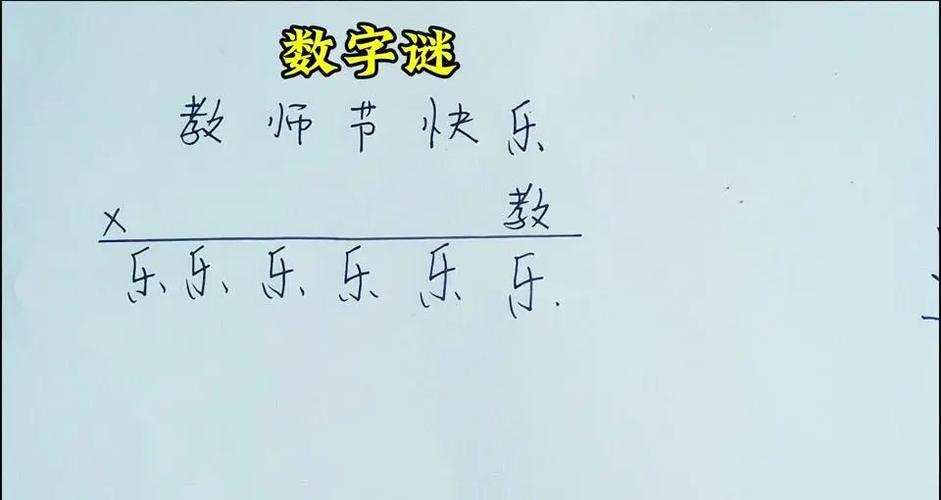 数字谜
教师节快乐
× 教
乐乐乐乐乐乐